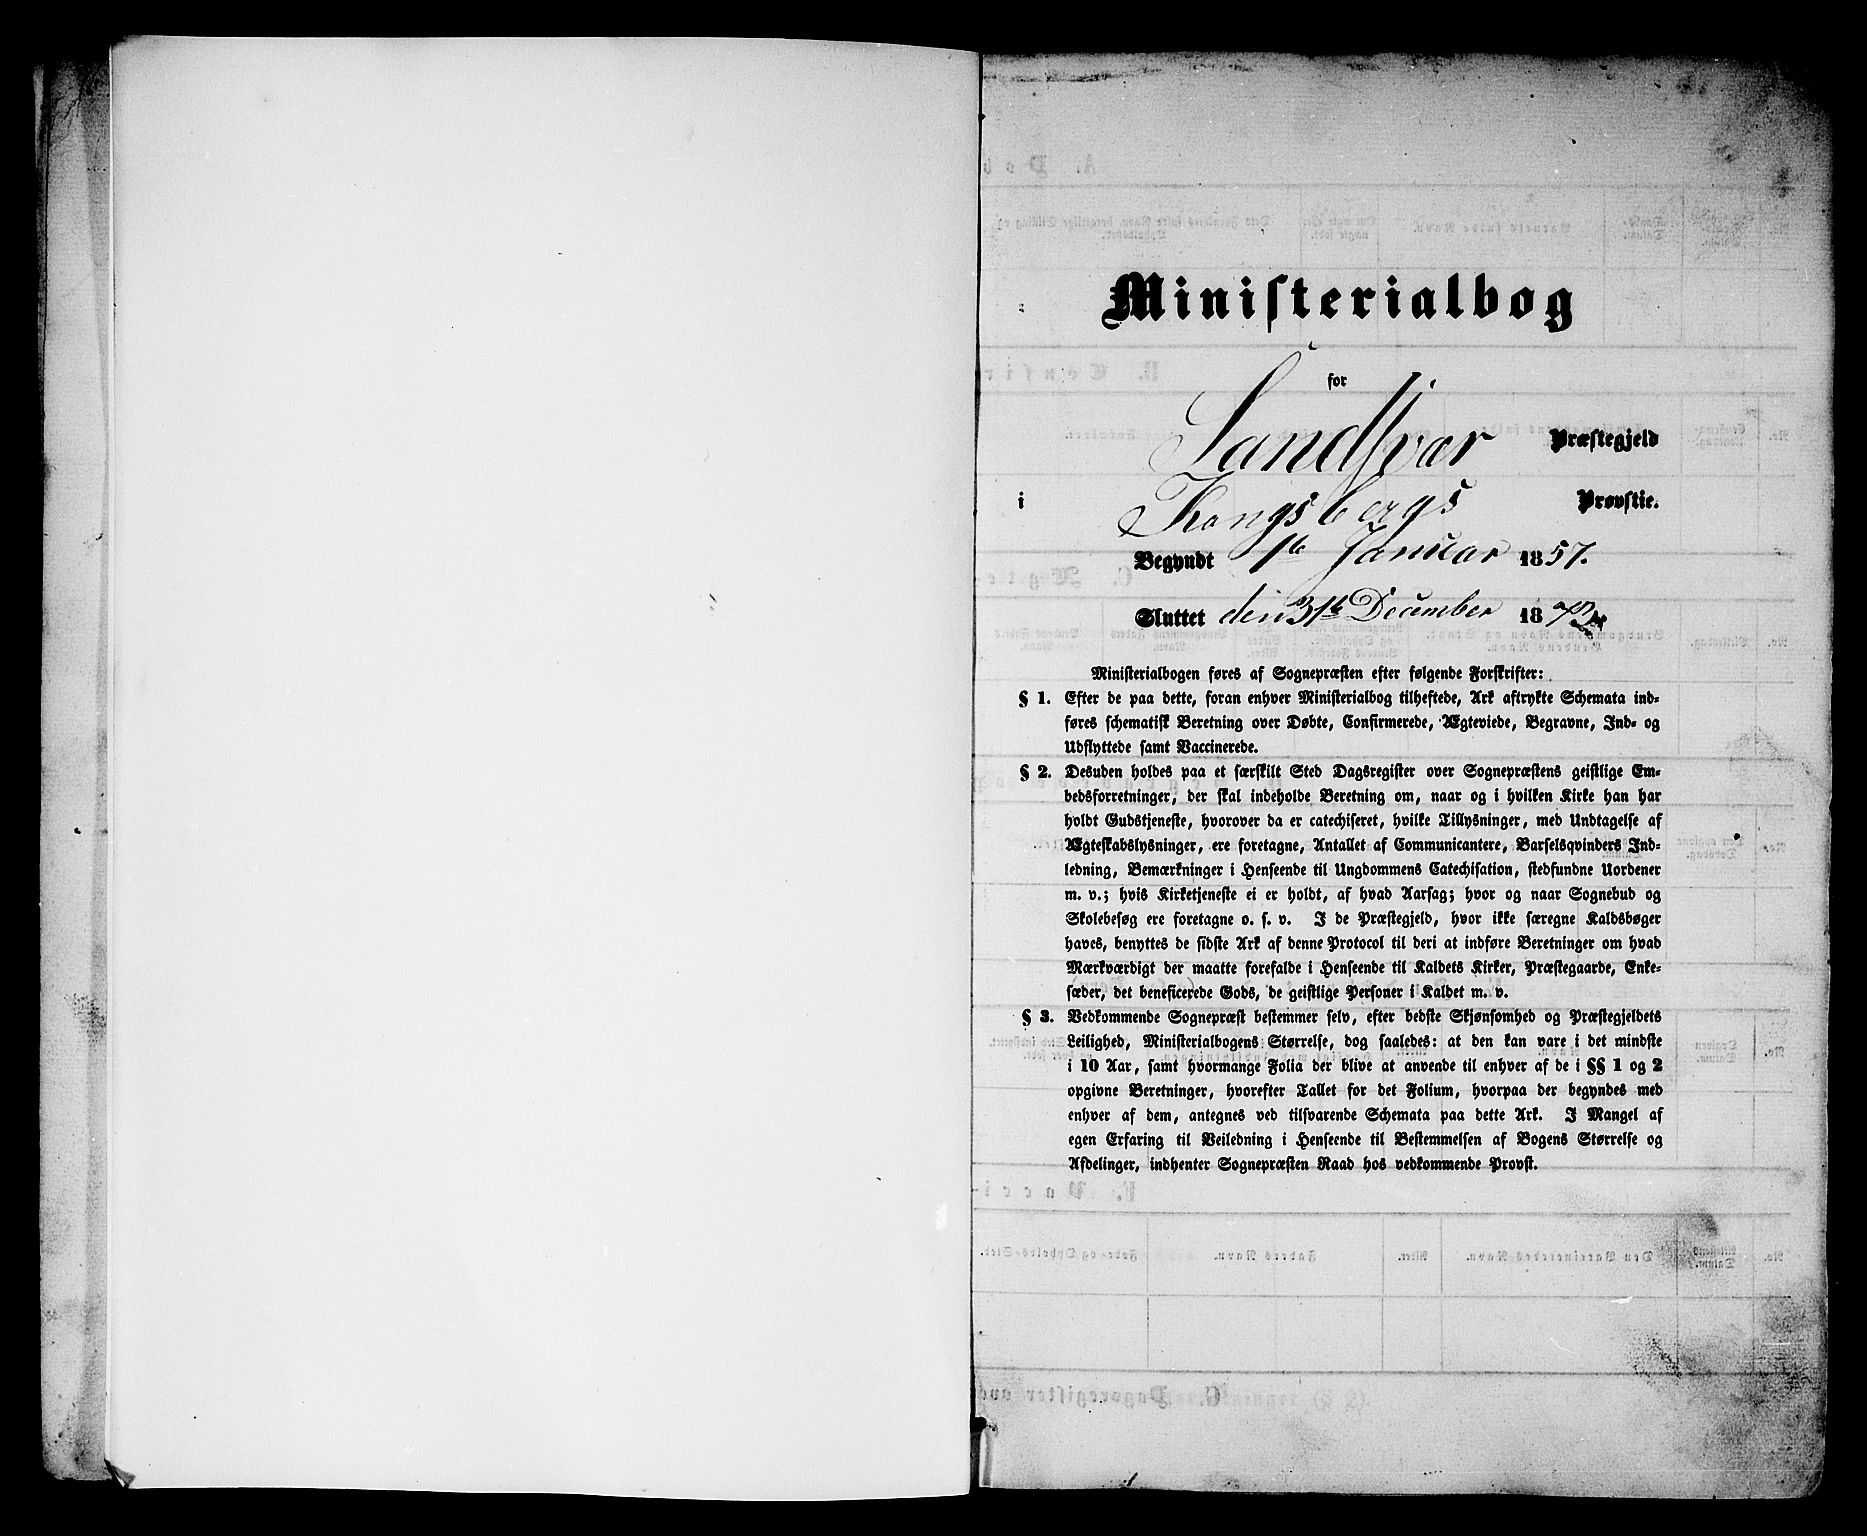 Ministerialbog
for
Sandsvær Præstegjeld
i Kongsbergs Provstie.
Begyndt 1te Januar 1857.
Sluttet den 31te December 18
Ministerialbogen føres af Sognepræsten efter følgende Forskrifter:
§ 1. Efter de paa dette, foran enhver Ministerialbog tilheftede, Ark aftrykte Schemata ind-
føres schematisk Beretning over Døbte, Confirmerede, Ægteviede, Begravne, Ind- og
Udflyttede samt Vaccinerede.
§ 2. Desuden holdes paa et særskilt Sted Dagsregister over Sognepræstens geistlige Em-
bedsforretninger, der skal indeholde Beretning om, naar og i hvilken Kirke han har
holdt Gudstjeneste, hvorover da er catechiseret, hvilke Tillysninger, med Undtagelse af
Ægteskabslysninger, ere foretagne, Antallet af Communicantere, Barselsqvinders Ind-
ledning, Bemærkninger i Henseende til Ungdommens Catechisation, stedfundne Uordener
m. v.; hvis Kirketjeneste ei er holdt, af hvad Aarsag; hvor og naar Sognebud og
Skolebesøg ere foretagne o. s. v. I de Præstegjeld, hvor ikke særegne Kaldsbøger
haves, benyttes de sidste Ark af denne Protocol til deri at indføre Beretninger om hvad
Mærkværdigt der maatte forefalde i Henseende til Kaldets Kirker, Præstegaarde, Enke-
sæder, det beneficerede Gods, de geistlige Personer i Kaldet m. v.
§ 3. Vedkommende Sognepræst bestemmer selv, efter bedste Skjønsomhed og Præstegjeldets
Leilighed, Ministerialbogens Størrelse, dog saaledes: at den kan vare i det mindste
i 10 Aar, samt hvormange Folia der blive at anvende til enhver af de i §§ 1 og 2
opgivne Beretninger, hvorefter Tallet for det Folium, hvorpaa der begyndes med
enhver af dem, antegnes ved tilsvarende Schemata paa dette Ark. I Mangel af
egen Erfaring til Veiledning i Henseende til Bestemmelsen af Bogens Størrelse og
Afdelinger, indhenter Sognepræsten Raad hos vedkommende Provst.